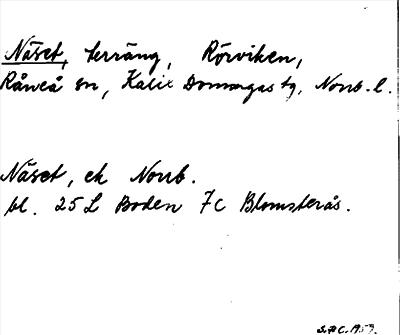 Näset, terräng, Rörviken,
Råneå sn, Kalix Domsagas tg, Norrb. l.
Näset, ek Norrb.
bl. 25 L Boden 7c Blomsterås.
1957.